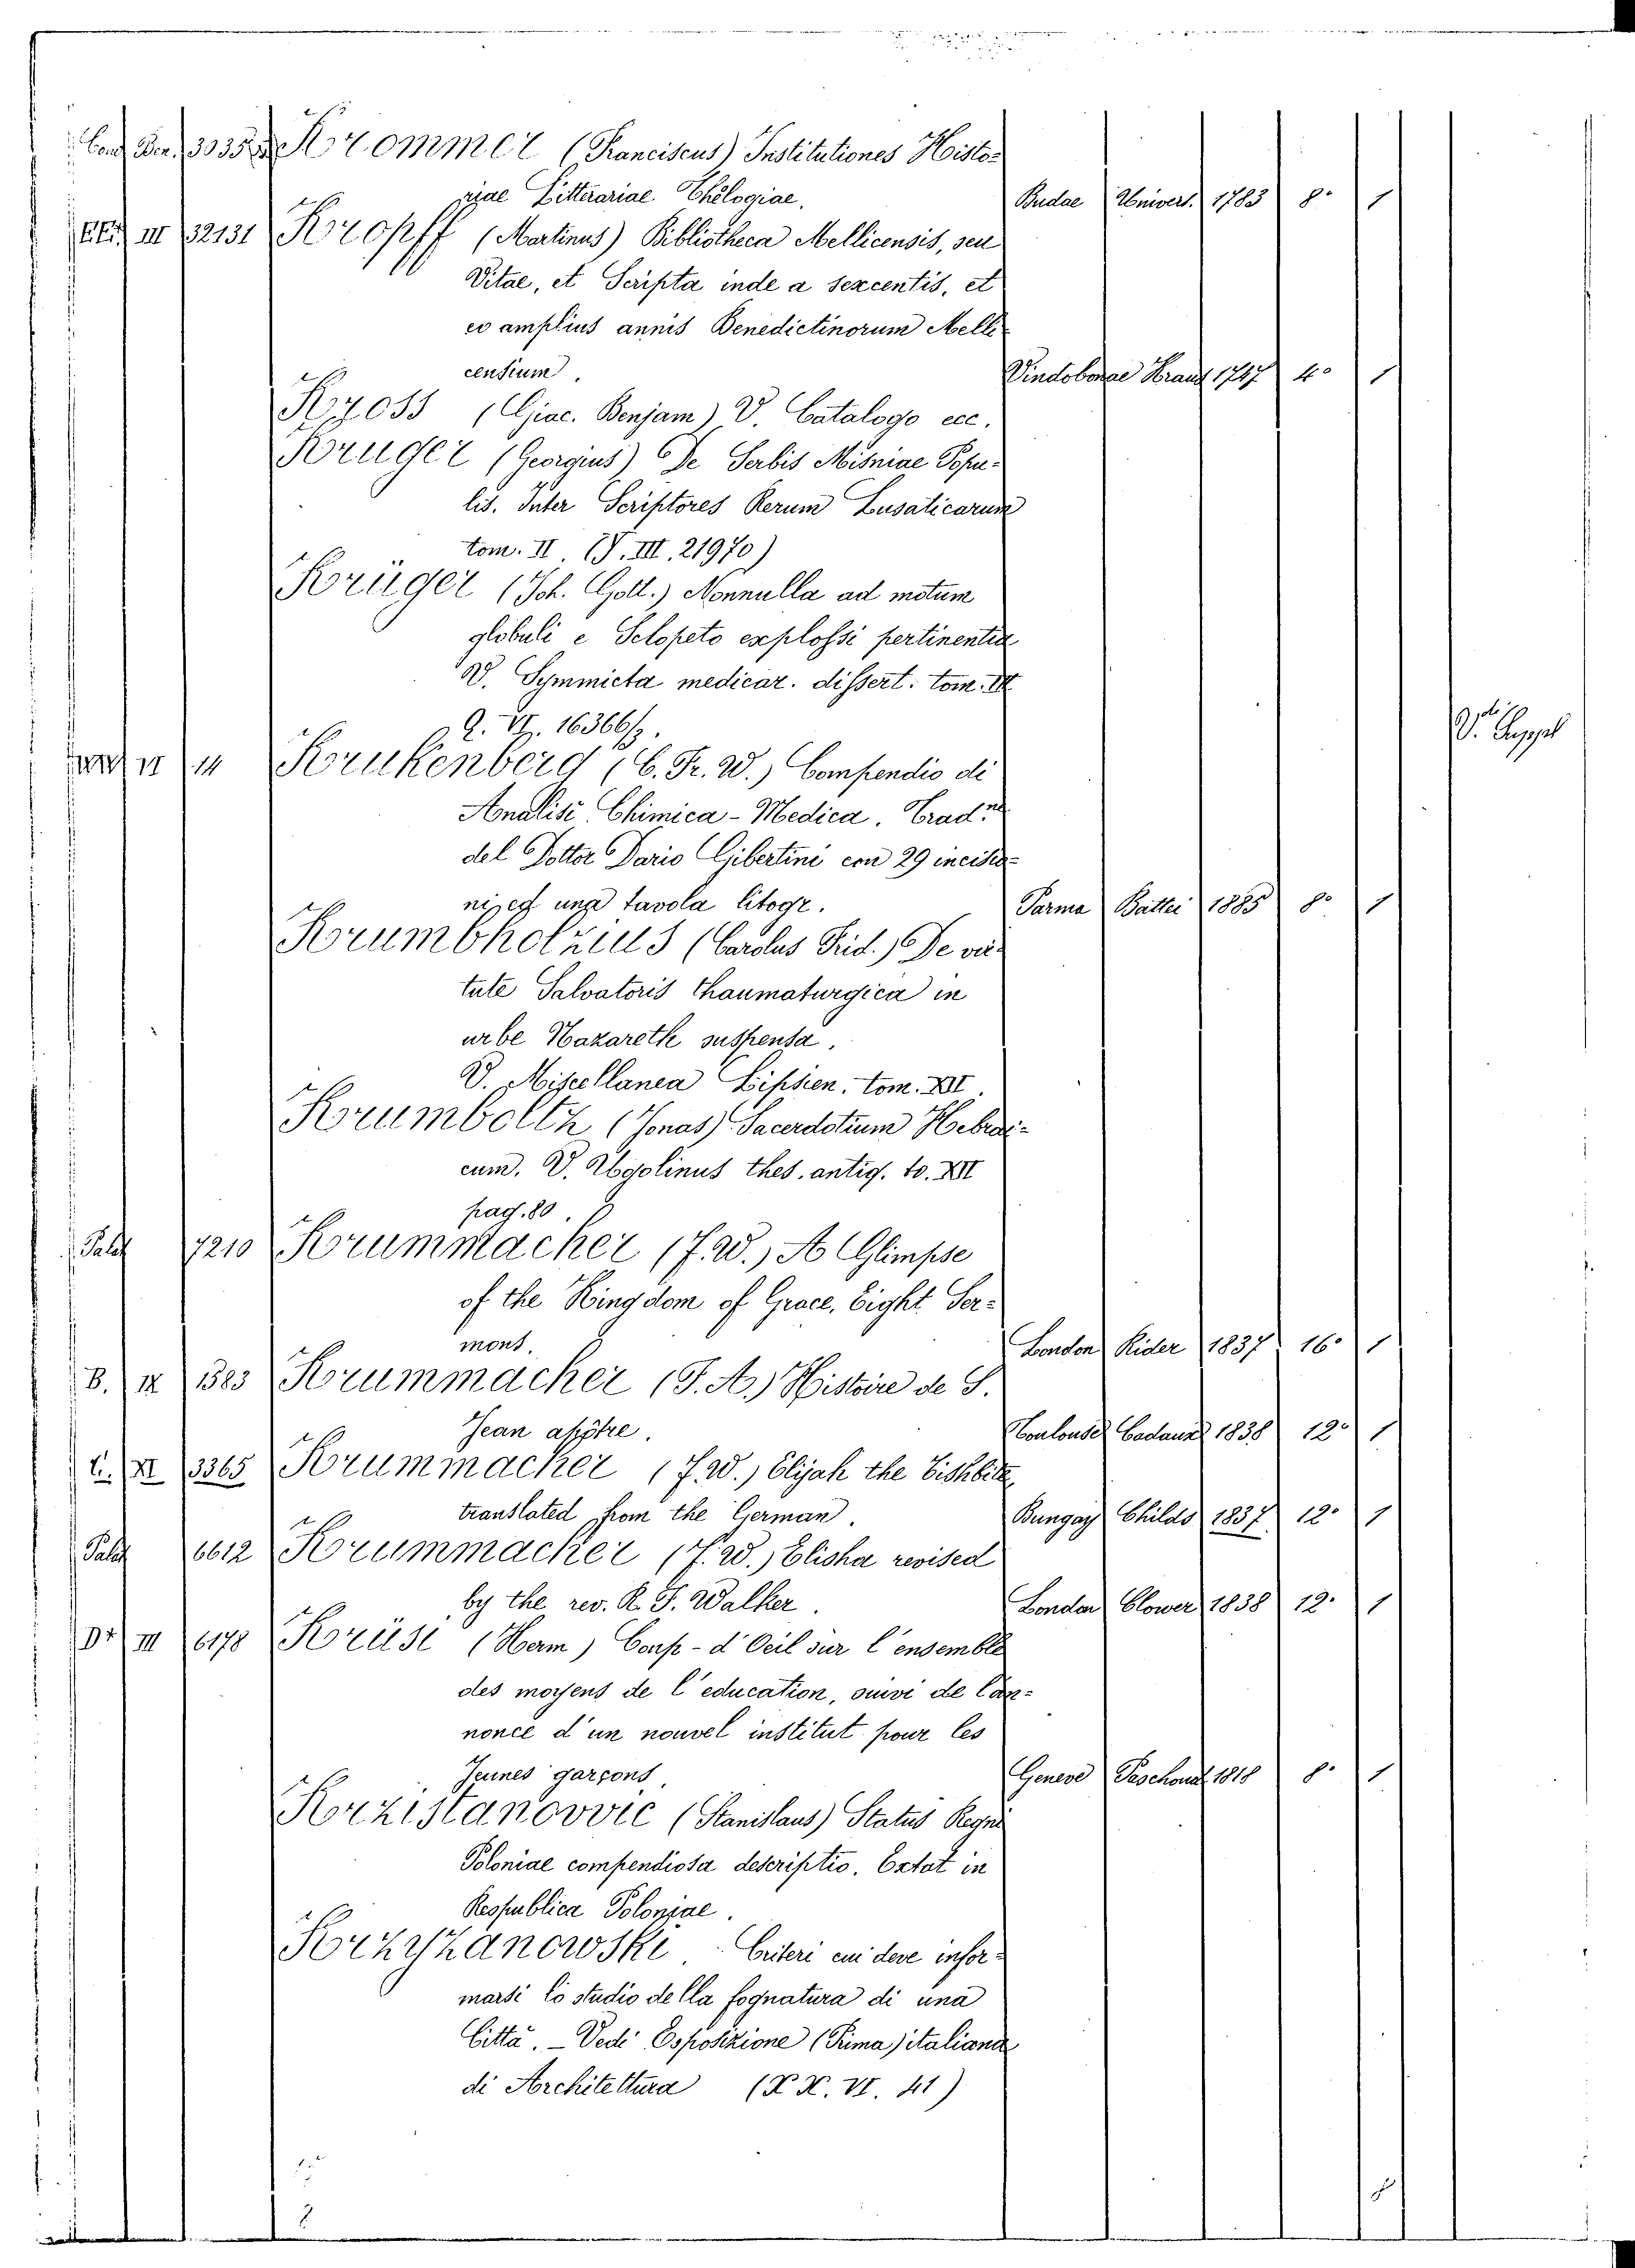 33352 Krommer (Franciscus) Institutiones Histo-
riae Litterariae Theologiae. Budae Univers. 1783 8° 1
III 32131 Kropff (Martinus) Bibliotheca Mellicensis, seu
Vitae, et Scripta inde a sexcentis, et
eo amplius annis Benedictinorum Melli-
censium. Vindobonae Kraus 1747 4° 1
Kross (Giac. Benjam) V. Catalogo ecc.
Kruger (Georgius) De Serbis Misniae Popu-
lis. Inter Scriptores Rerum Lusaticarum
tom. II. (V. III. 21970)
Krüger (Joh. Gott.) Nonnulla ad motum
globuli e Sclopeto explossi pertinentia
V. Symmicta medicar. dissert. tom.
Q. VI. 16366/3.
II 14 Krukenberg (C. Fr. W.) Compendio di
Analisi Chimica - Medica. Trad.ne
del Dottor Dario Gibertini con 29 incisio-
ni, ed una tavola litogr. Parma Battei 1885 8° 1
Krumbholzius (Carolus Frid.) De vir-
tute Salvatoris thaumaturgica in
urbe Nazareth suspensa.
V. Miscellanea Lipsien. tom. XII.
Krumboltz (Jonas) Sacerdotium Hebrai-
cum. V. Ugolinus thes. antiq. to. XII
pag. 80.
Palat 7210 Krummacher (F. W.) A Glimpse
of the Kingdom of Grace, Eight Ser-
mons. London Rider 1837 16° 1
B. IX 1383 Krummacher (F. A.) Histoire de S.
Jean apôtre. Toulouse Cadaux 1838 12° 1
C. XI 3365 Krummacher (F. W.) Elijah the Tishbite
translated from the German. Bungay Childs 1837 12° 1
Palat 6612 Krummacher (F. W.) Elisha revised
by the rev. R. F. Walker. London Clower 1838 12° 1
III 6178 Krüse (Herm) Coup-d'Oeil sur l'ensemble
des moyens de l'education, suivi de l'an-
nonce d'un nouvel institut pour les
Jeunes garçons. Geneve Paschoud 1818 8° 1
Krzistanovvic (Stanislaus) Status Regni
Poloniae compendiosa descriptio. Extat in
Respublica Poloniae.
Krzyzanowski. Criteri cui deve infor-
marsi lo studio della fognatura di una
Città. - Vedi Esposizione (Prima) italiana
di Architettura (X X. VI. 41)